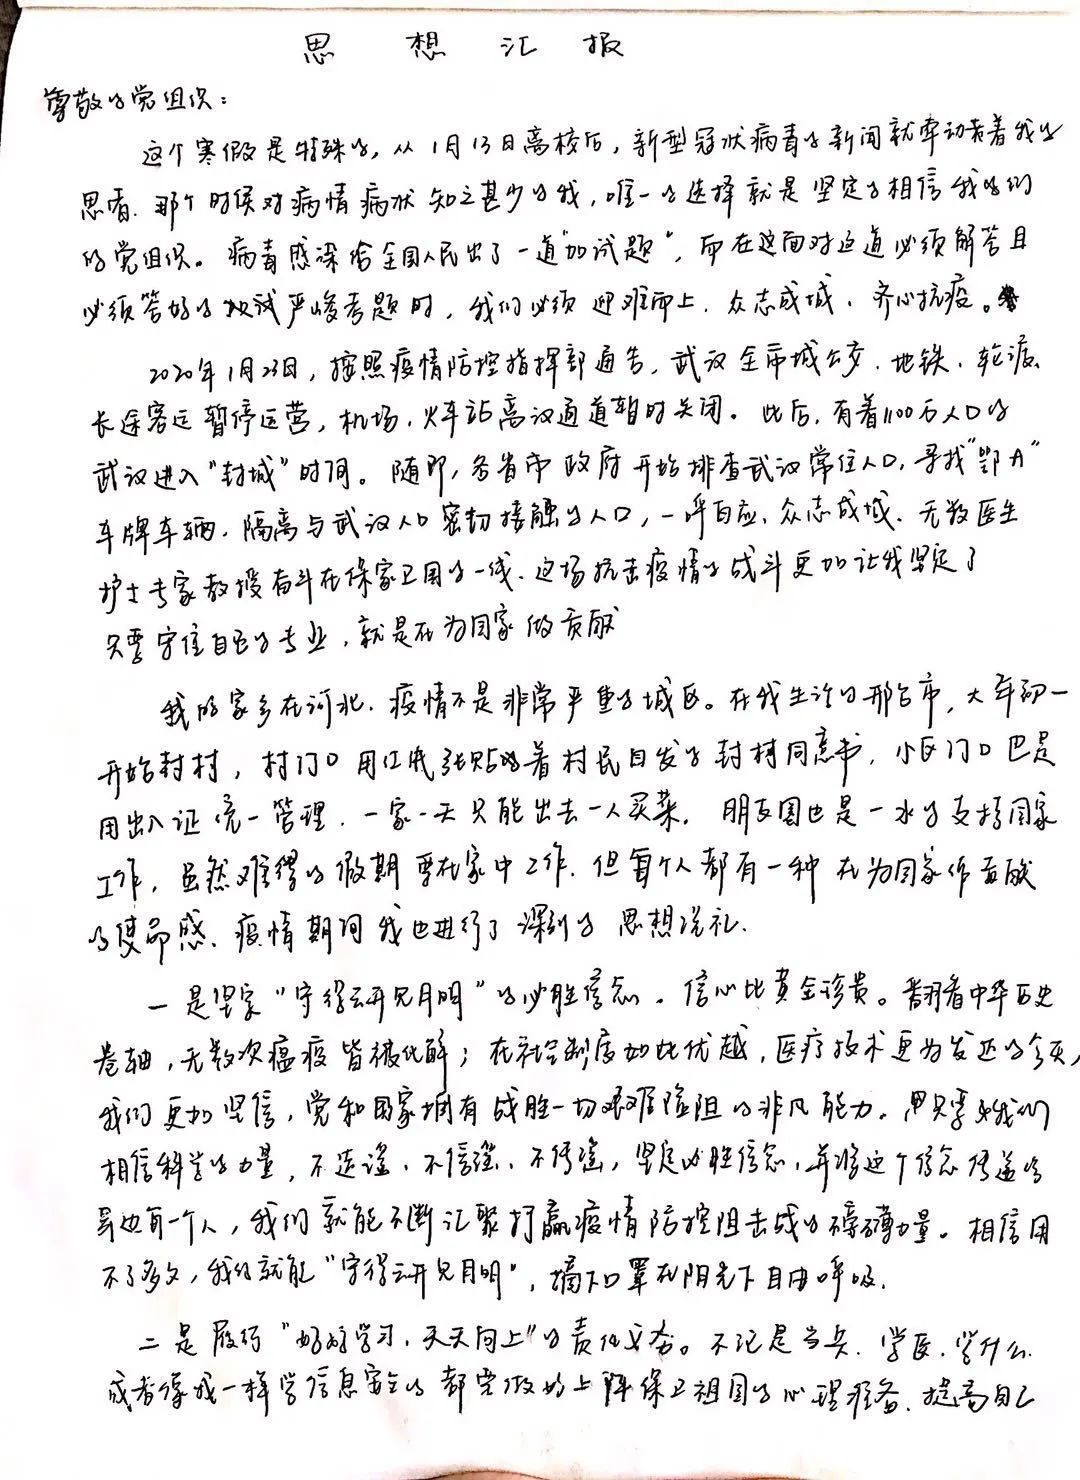 思想汇报
尊敬的党组织：
这个寒假是特殊的，从1月13日离校后，新型冠状病毒的新闻就牵动着我的
思者，那个时候对病情病状知之甚少的我，唯一的选择就是坚定的相信我的们
的党组织。病毒感染给全国人民出了一道"加试题"，而在这面对这道必须解答且
必须答好的加试严峻考题时，我们必须迎难而上，众志成城、齐心抗疫。
2020年1月23日，按照疫情防控指挥部通告，武汉全市城公交、地铁、轮渡、
长途客运暂停运营，机场，火车站离汉通道暂时关闭。此后，有着1100万人口的
武汉进入"封城"时间。随即，各省市政府开始排查武汉常住人口，寻找"鄂A"
车牌车辆，隔离与武汉人口密切接触的人口，一呼百应、众志成城、无数医生
护士专家教授奋斗在保家卫国的一线，这场抗击疫情的战斗更加让我坚定了
只要守住自己的专业，就是在为国家做贡献
我的家乡在河北，疫情不是非常严重的城区。在我生活的邢台市，大年初一
开始封村，村门口用红纸张贴的着村民自发的封村同意书，小区门口也是
用出入证统一管理，一家一天只能出去一人买菜，朋友圈也是一水的支持国家
工作，虽然难得的假期要在家中工作，但每个人都有一种在为国家作贡献
的使命感，疫情期间我也进行了深刻的思想洗礼。
一是坚定"守得云开见月明"的必胜信念。信心比黄金珍贵。翻看中华历史
卷轴，无数次瘟疫皆被化解；在社会制度如此优越，医疗技术更为发达的今天，
我们更加坚信，党和国家拥有战胜一切艰难险阻的非凡能力。只要我们
相信科学的力量，不造谣、不信谣、不传谣，坚定必胜信念，并将这个信念传递给
身边每一个人，我们就能不断汇聚打赢疫情防控阻击战的磅礴力量。相信用
不了多久，我们就能"守得云开见月明"，摘下口罩在阳光下自由呼吸。
二是履行"好好学习，天天向上"的责任义务。不论是当兵、学医、学什么
或者像我一样学信息安全的都要做好上阵保卫祖国的心理准备，提高自己